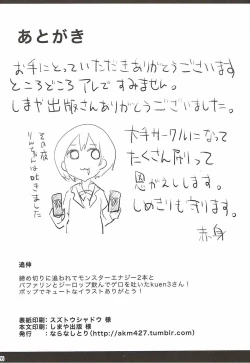 あとがき
お手にとっていただきありがとうございます
ところどころ アレですみません。
しまや出版さんありがとうございました。
大手サークルになって
たくさん刷って
恩がえしします。
しめきりも守ります。
赤身
その夜
りんちゃんは吐きました
追伸
締め切りに追われてモンスターエナジー2本と
バファリンとジーロップ飲んでゲロを吐いたkuen3さん!
ポップでキュートなイラストありがとう!
表紙印刷: スズトウシャドウ 様
本文印刷: しまや出版 様
発行: ならなしとり (http://akm427.tumblr.com)